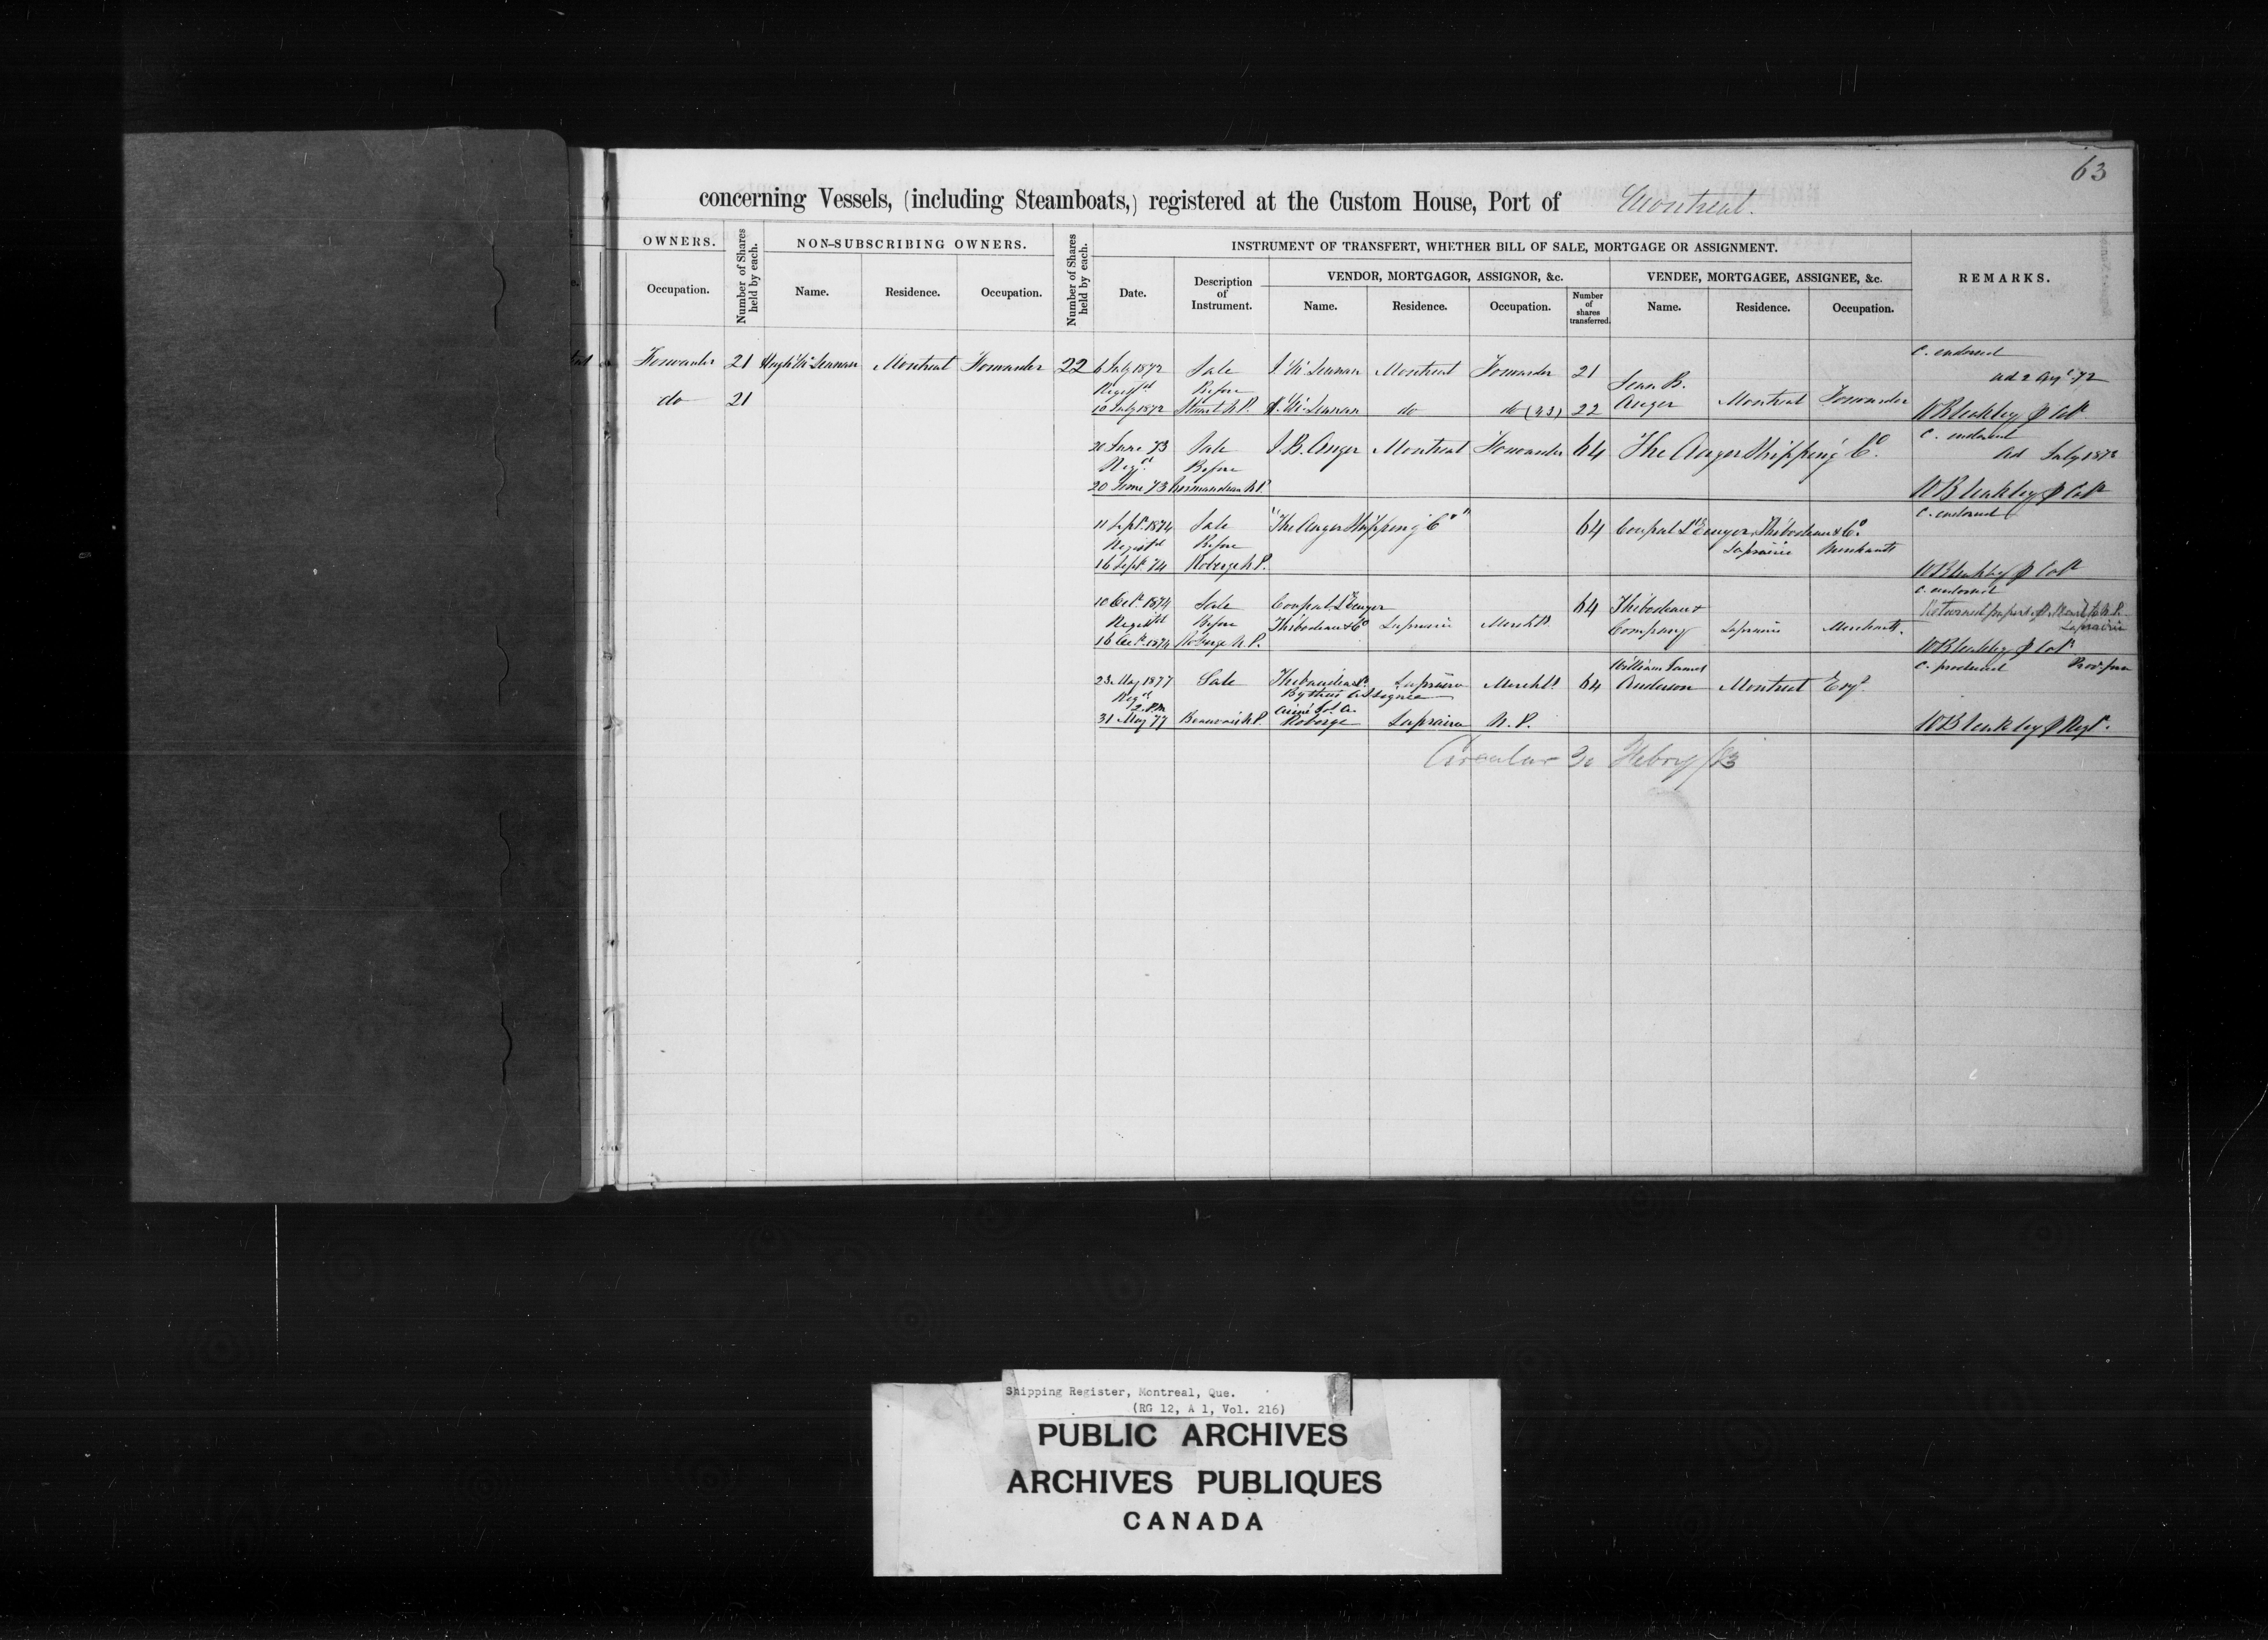 63
concerning Vessels, (including Steamboats,) registered at the Custom House, Port of Montreal.
OWNERS. Number of Shares held by each. NON-SUBSCRIBING OWNERS. Number of Shares held by each. INSTRUMENT OF TRANSFERT, WHETHER BILL OF SALE, MORTGAGE OR ASSIGNMENT. REMARKS.
VENDOR, MORTGAGOR, ASSIGNOR, &c. VENDEE, MORTGAGEE, ASSIGNEE, &c.
Occupation. Name. Residence. Occupation. Date. Description of Instrument. Name. Residence. Occupation. Number of shares transferred. Name. Residence. Occupation.
C. endorsed
Forwarder 21 Hugh McLennan Montreal Forwarder 22 6 July 1872 Sale J. McLennan Montreal Forwarder 21
Regist'd Before Jean B.
do 21 10 July 1872 Stuart N.P. H. McLennan do do (43) 22 Auger Montreal Forwarder WBleakley
C. endorsed
20 June 73 Sale J.B. Auger Montreal Forwarder 64 The Auger Shipping Co.
Reg'd Before
20 June 73 Normandeau N.P. WBleakley
C. endorsed
11 Sept. 1874 Sale "The Auger Shipping Co" 64 Coupal Thibodeau & Co.
Regist'd Before Laprairie Merchants
16 Sept. 74 Roberge N.P. WBleakley
C. endorsed
10 Oct. 1874 Sale Coupal 64 Thibodeau &
Regist'd Before Thibodeau & Co Laprairie Merchts Company Laprairie Merchants.
Laprairie
16 Oct. 1874 Roberge N.P. WBleakley
William James C. produced
23 May 1877 Sale Laprairie Merchts 64 Anderson Montreal Esqr.
Reg'd By their Assignee
2 P.M.
31 May 77 Beauvais N.P. Roberge Laprairie N.P. WBleakley
Circular 20 Febry /83
Shipping Register, Montreal, Que.
(RG 12, A 1, Vol. 216)
PUBLIC ARCHIVES
ARCHIVES PUBLIQUES
CANADA